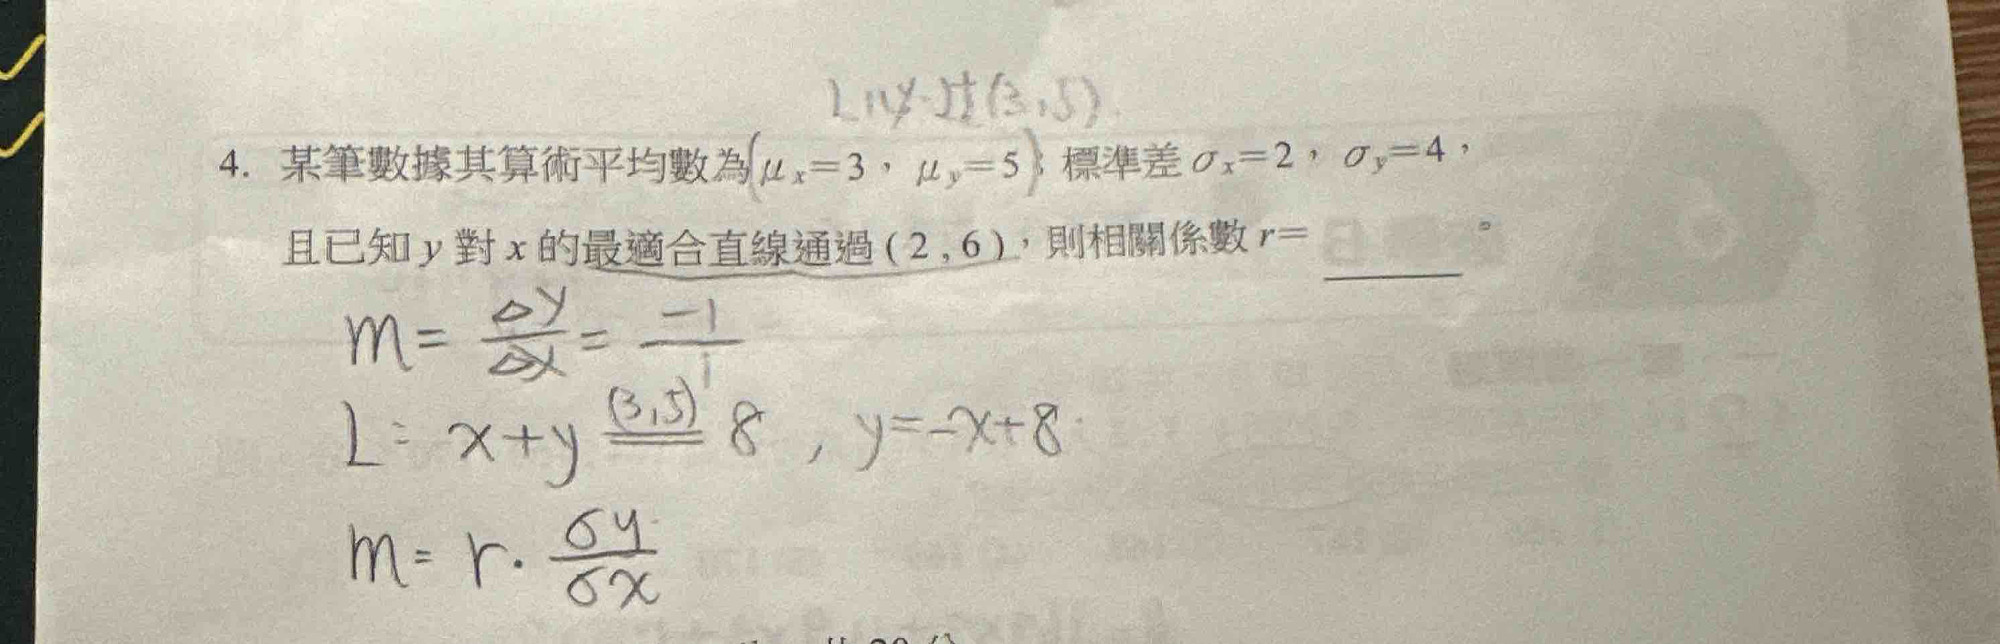 L必过(3,5)
4. 某筆數據其算術平均數為(μx=3,μy=5);標準差σx=2,σy=4,
且已知y對x的最適合直線通過(2,6),則相關係數r=______。
m=Δy/Δx=-1/1
L: x+y (3,5)== 8 , y=-x+8
m= r·σy/σx